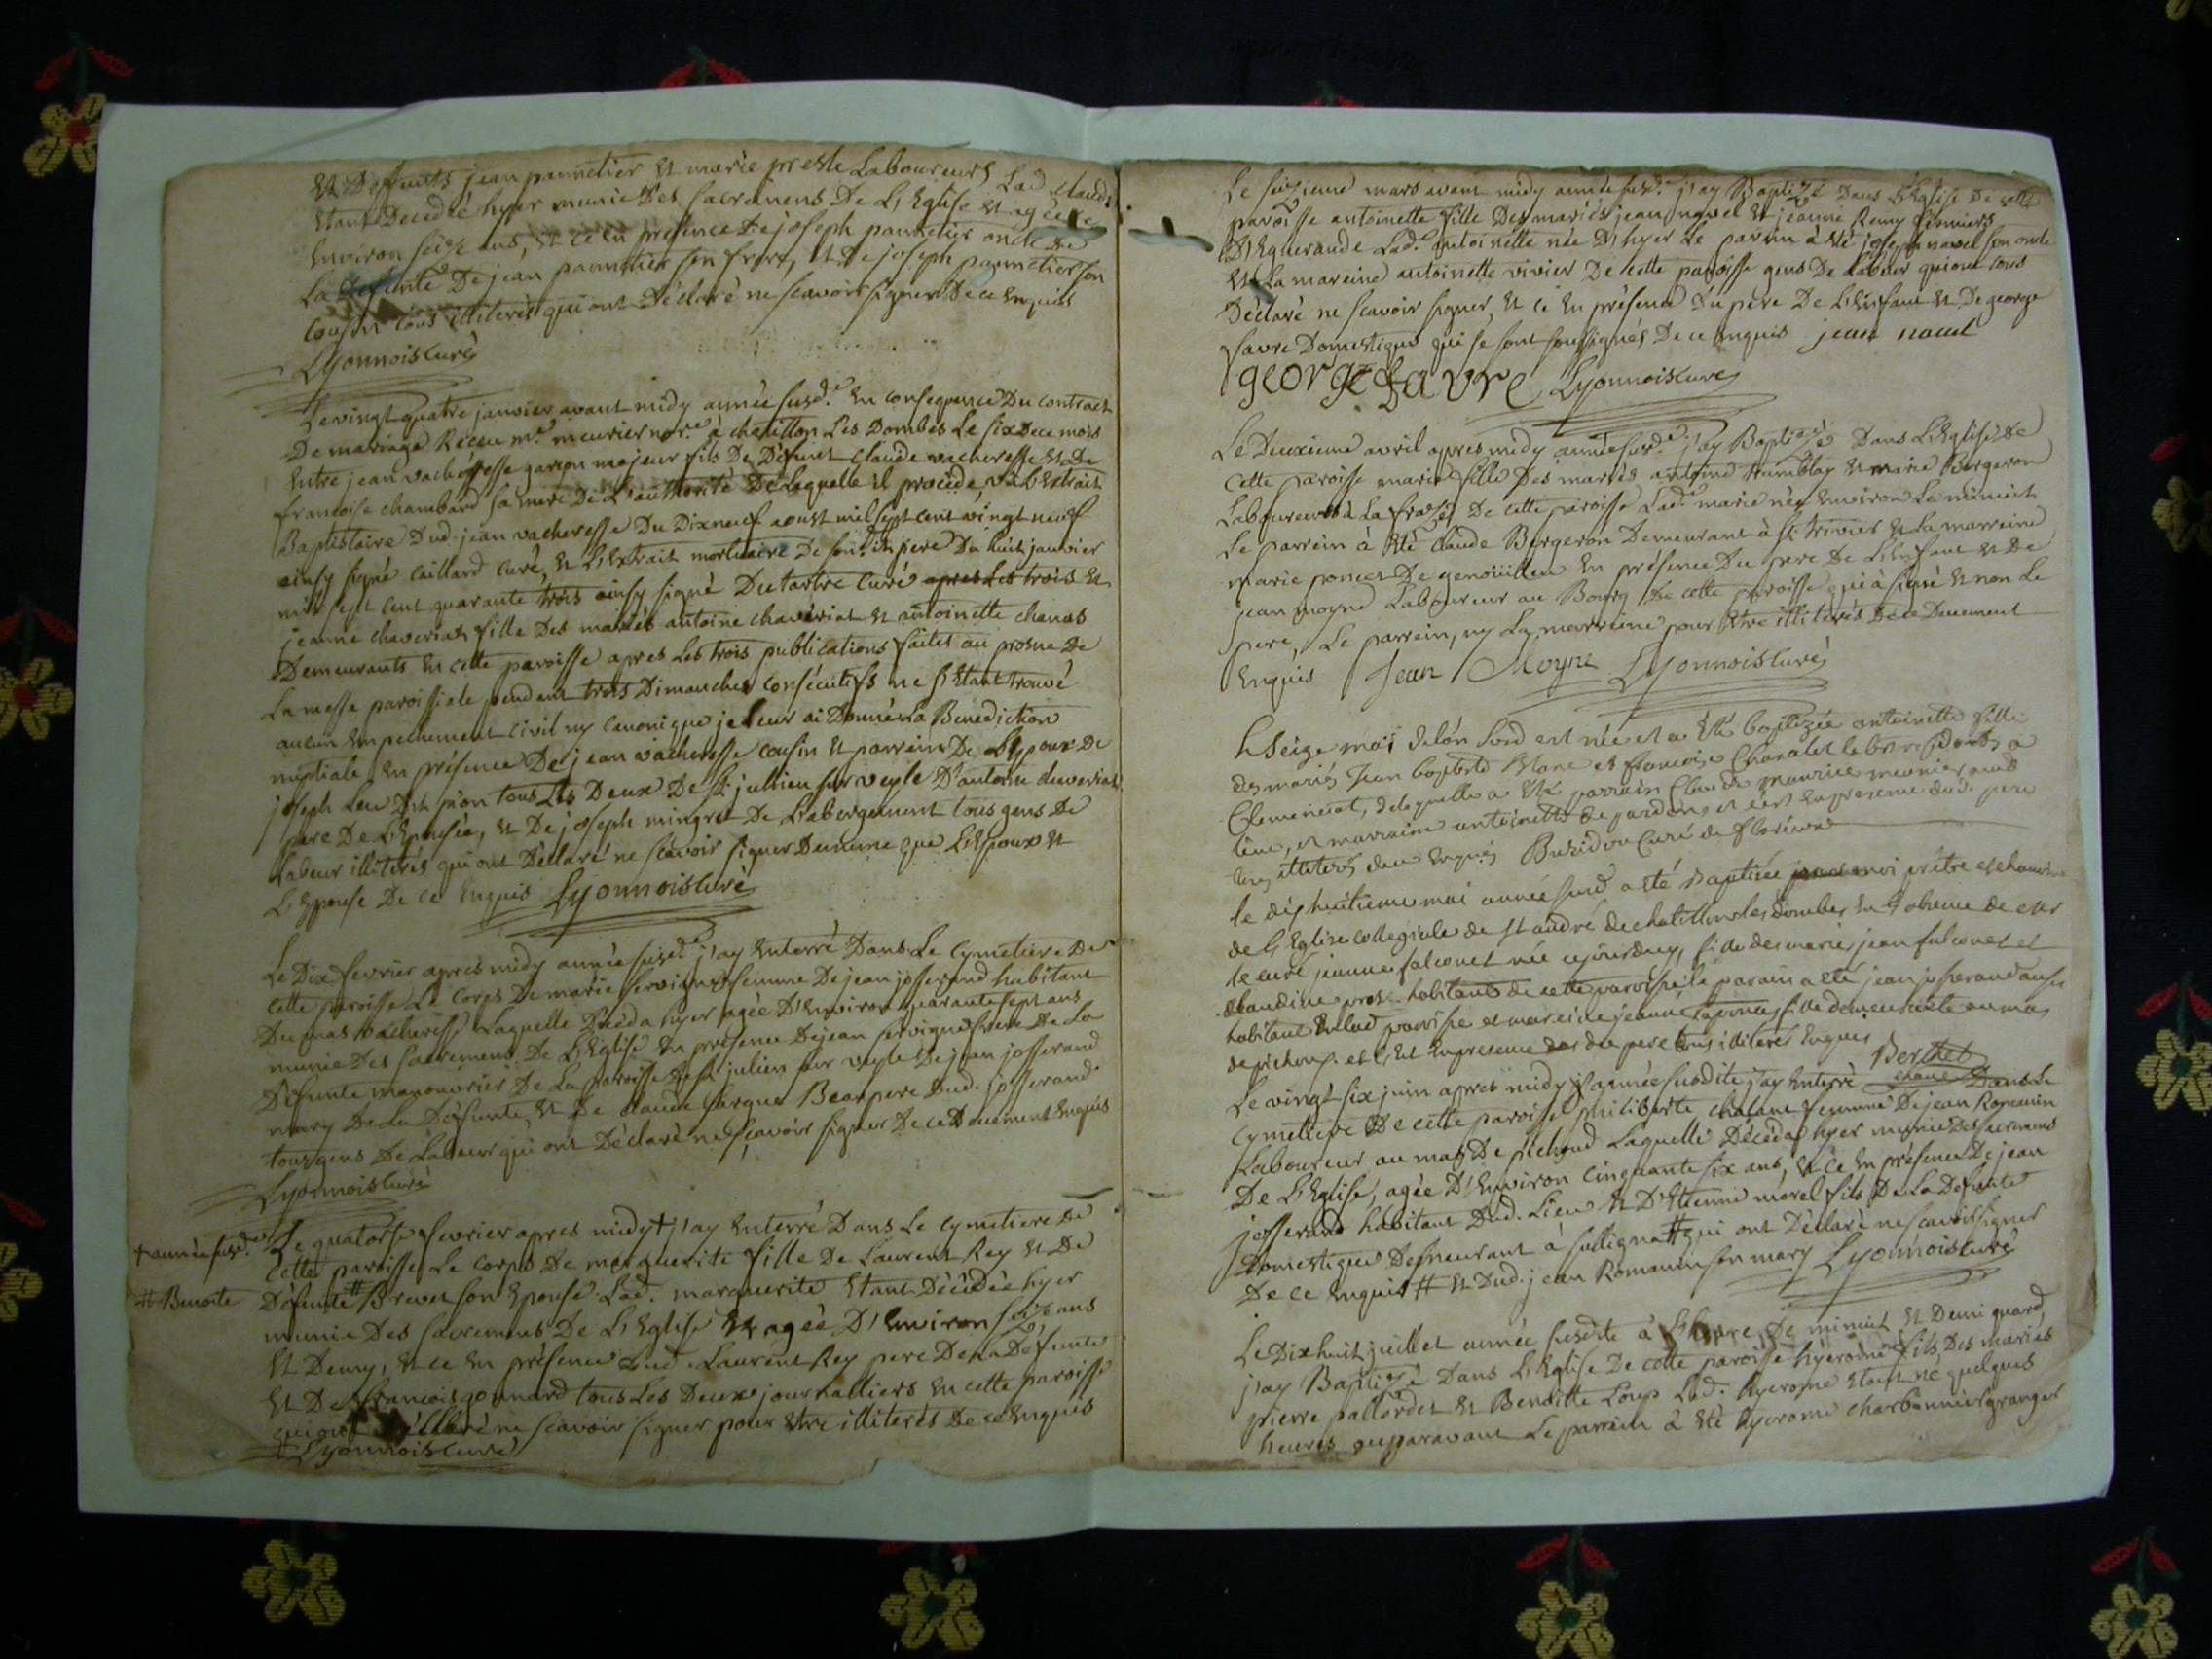 Et Deffunts jean pannetier Et marie preste Laboureurs Lad. claude
Etant Decedeé hyer munie Des sacremens De L'Eglise Et ageé
Environ seize ans, Et ce En presence De joseph pannetier oncle De
La defunte De jean pannetier son frere, Et De joseph pannetier son
Cousin tous illiterés qui ont Déclaré ne scavoir signer De ce Enquis
Lyonnois curé
Le vingt quatre janvier avant midy année susd.e En consequence Du contract
De mariage Receu m.e meurier no.re à chatillon Les Dombes Le six De ce mois
Entre jean vacheresse garçon majeur fils De Défunt claude vacheresse Et De
francoise chambard sa mere De L'authorité De laquelle il procéde, vû L'Extrait
Baptistaire Dud. jean vacheresse Du Dixneuf aoust mil sept cent vingt neuf
ainsy signé Caillard curé, Et L'Extrait mortuaire De son d. pere Du huit janvier
mil sept cent quarante trois ainsy signé Dutartre Curé apres Les trois Et
jeanne chaveriat fille Des mariés antoine chaveriat Et antoinette chanas
Demeurants En cette paroisse apres Les trois publications faites au prosne De
La messe paroissiale pendant trois Dimanches consécutifs ne s'Etant trouvé
aucun Empechement civil ny canonique je Leur ai Donné La Benediction
nuptiale En présence De jean vacheresse cousin Et parrein De L'Epoux De
joseph pion tous Les Deux De st. jullien sur veyle D'antoine chaveriat
pere De L'Epousée, Et De joseph mingret De L'abergement tous gens De
Labeur illiterés qui ont Déclaré ne scavoir signer De meme que L'Epoux Et
L'Epouse De ce Enquis Lyonnois curé
Le Dix fevrier apres midy année susd.e j'ay Enterré Dans Le Cymetiere De
cette paroisse Le Corps De marie servigne femme De jean josserand habitant
Du mas vacheresse Laquelle Décéda hyer agée D'Environ quarante sept ans
munie Des sacremens De L'Eglise En présence De jean servigne frere De La
Défunte manouvrier De La paroisse De st. julien sur veyle De jean josserand
mary De La Défunte, Et De claude fargue Beaupere Dud. josserand
tous gens De Labeur qui ont Déclaré ne scavoir signer De ce Duement Enquis
Lyonnois curé
Le quatorse fevrier apres midy + j'ay Enterré Dans Le cymetiere De
+ année susd.e
cette paroisse Le Corps De marguerite fille De Laurent Rey Et De
Défunte # Brevet son Epouse Lad. marguerite Etant Décédée hyer
# Benoite
munie Des sacremens De L'Eglise Et agée D'Environ seize ans
Et Demy, Et ce En présence Dud. Laurent Rey pere De La Défunte
Et De francois gonnard tous Les Deux journalliers En cette paroisse
qui ont Déclaré ne scavoir signer pour Etre illiterés De ce Enquis
Lyonnois curé
Le seizieme mars avant midy année susd.e j'ay Baptizé Dans L'Eglise De cette
paroisse antoinette fille Des mariés jean navel Et jeanne Remy fermiers
D'Egueraude Lad.e antoinette née D'hyer Le parrin à Eté joseph navel son oncle
Et La mareine antoinette vivier De cette paroisse gens De Labeur qui ont tous
Déclaré ne scavoir signer, Et ce En présence Du pere De L'Enfant Et De george
favre Domestique qui se sont soussignés De ce Enquis jean navel
george favre Lyonnois curé
Le Deuxieme avril apres midy année susd.e j'ay Baptizé Dans L'Eglise De
cette paroisse marie fille Des mariés antoine tramblay Et marie Bergeron
Laboureurs à La De cette paroisse Lad.e marie née Environ Le minuit
Le parrein à Eté claude Bergeron Demeurant à st. trivier Et La marreine
marie poncet De genoüilleu En présence Du pere De L'Enfant Et De
jean moyne Laboureur au Bourg De cette paroisse qui à signé Et non Le
pere, Le parrein, ny La marreine pour Etre illiterés De ce Duement
Enquis Jean Moyne Lyonnois curé
Le seize mai de l'an susd est née et a Eté baptizée antoinette fille
des mariés Jean baptiste Blanc et francoise Chanalet
Clemenciat, de laquelle a Eté parrain Claude maurice meunier aud
lieu, et marraine antoinette et c'est En presence dud. pere
tous illiterés de ce Enquis Curé de
le dix huitieme mai année susd a été Baptisée par moi prêtre et chanoine
de L'Eglise collegiale de st andré de chatillon les dombes En l'absence de mr
le curé jeanne falconet née ajourduy, fille des mariés jean falconet et
claudine habitants de cette paroisse le parain a eté jean josserand aussi
habitant En lad paroisse et mareine jeanne fille demeurante au mas
de pichoud. et c'est En presence dud pere tous illiterés Enquis Berthet
chane
Le vingt six juin apres midy année susdite j'ay Enterré Dans Le
cymetiere De cette paroisse philiberte chatane femme De jean Romanin
Laboureur au mas De pichoud Laquelle Décéda hyer munie Des sacremens
De L'Eglise, agée D'Environ cinquante six ans, Et ce En présence De jean
josserand habitant Dud. Lieu Et D'Etienne morel fils De La Defunte
Domestique Demeurant à sulligna # qui ont Déclaré ne scavoir signer
De ce Enquis # Et Dud. jean Romanin son mary Lyonnois curé
Le Dix huit juillet année susdite à L'heure De minuit Et Demi quard,
j'ay Baptizé Dans L'Eglise De cette paroisse hyerome fils Des mariés
pierre pallordet Et Benoitte Loup Led. hyerome Etant né quelques
heures auparavant Le parrein à Eté hyerome charbonnier granger